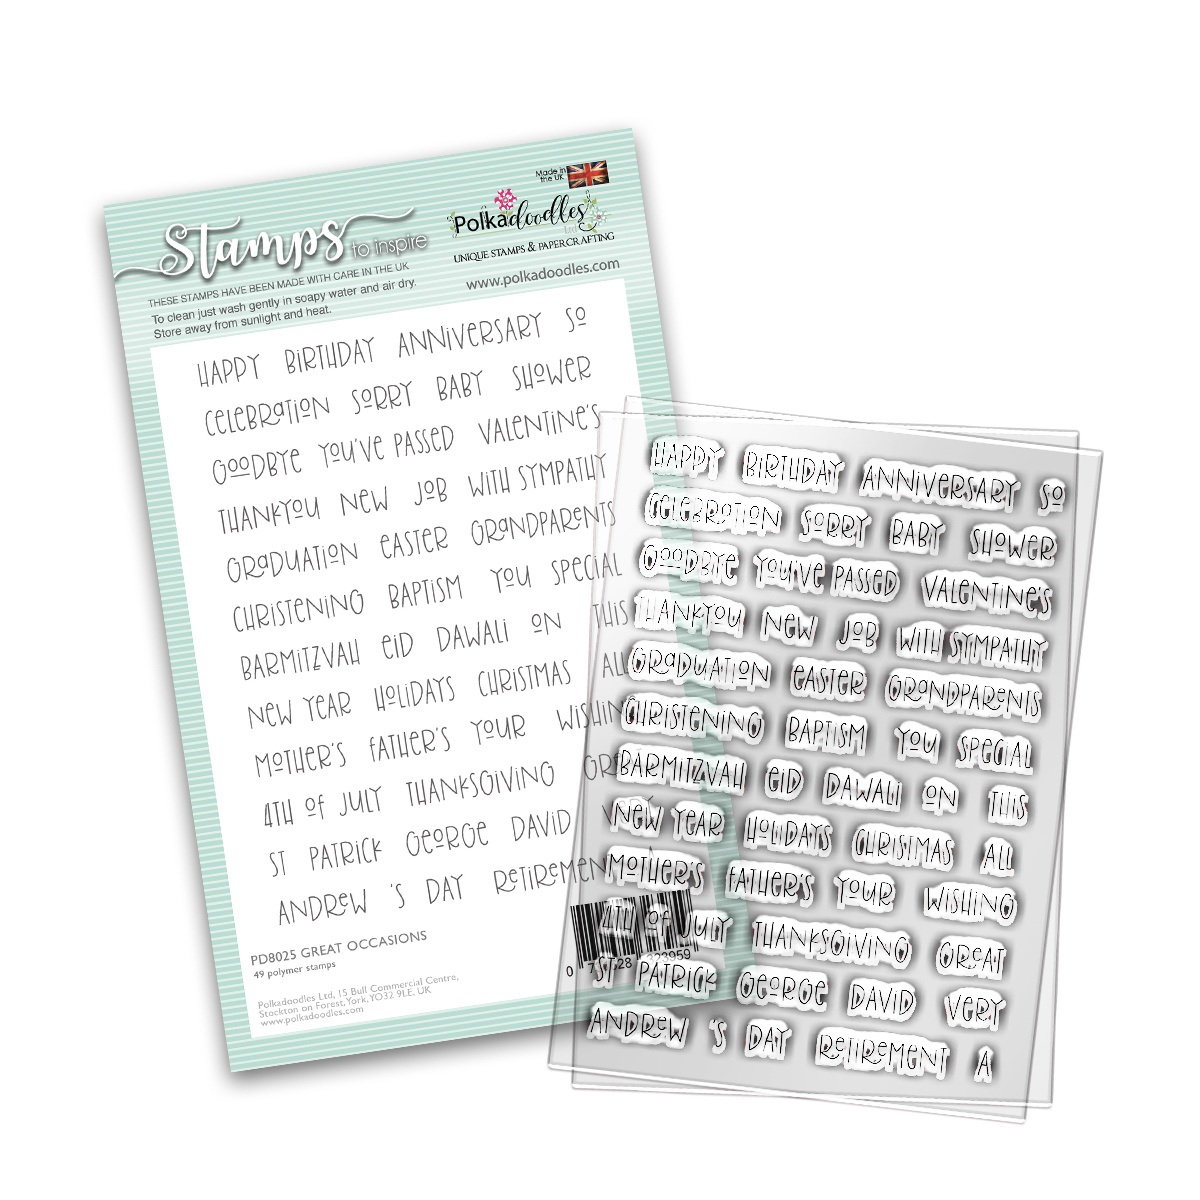 Made in
the UK
Stamps to inspire
Polkadoodles
Ltd
UNIQUE STAMPS & PAPERCRAFTING
www.polkadoodles.com
THESE STAMPS HAVE BEEN MADE WITH CARE IN THE UK
To clean just wash gently in soapy water and air dry.
Store away from sunlight and heat.
HAPPY BiRTHDAY ANNiVERSARY So
CeLEBRATiON SoRRY BABY SHoWER
GooDBYE YoU'VE PASSED VALENTiNE'S
THANKYoU NEW JoB WiTH SYMPATHY
GRADUATiON EASTER GRANDPARENTS
CHRiSTENiNG BAPTiSM YoU SPECiAL
BARMiTZVAH EiD DAWALi oN THiS
NEW YEAR HoLiDAYS CHRiSTMAS ALL
MoTHER'S FATHER'S YoUR WiSHiN
4TH oF JULY THANKSGiViNG GR
ST PATRiCK GEoRGE DAViD
ANDReW 'S DAY ReTiREMEN
PD8025 GREAT OCCASIONS
49 polymer stamps
Polkadoodles Ltd, 15 Bull Commercial Centre,
Stockton on Forest, York, YO32 9LE. UK
www.polkadoodles.com
HAPPY BiRTHDAY ANNiVERSARY So
CeLEBRATiON SoRRY BABY SHoWER
GooDBYE YoU'VE PASSED VALENTiNE'S
THANKYoU NEW JoB WiTH SYMPATHY
GRADUATiON EASTER GRANDPARENTS
CHRiSTENiNG BAPTiSM YoU SPECiAL
BARMiTZVAH EiD DAWALi oN THiS
NEW YEAR HoLiDAYS CHRiSTMAS ALL
MoTHER'S FATHER'S YoUR WiSHiNG
4TH oF JULY THANKSGiViNG GReAT
ST PATRiCK GEoRGE DAViD VERY
ANDReW 'S DAY ReTiREMENT A